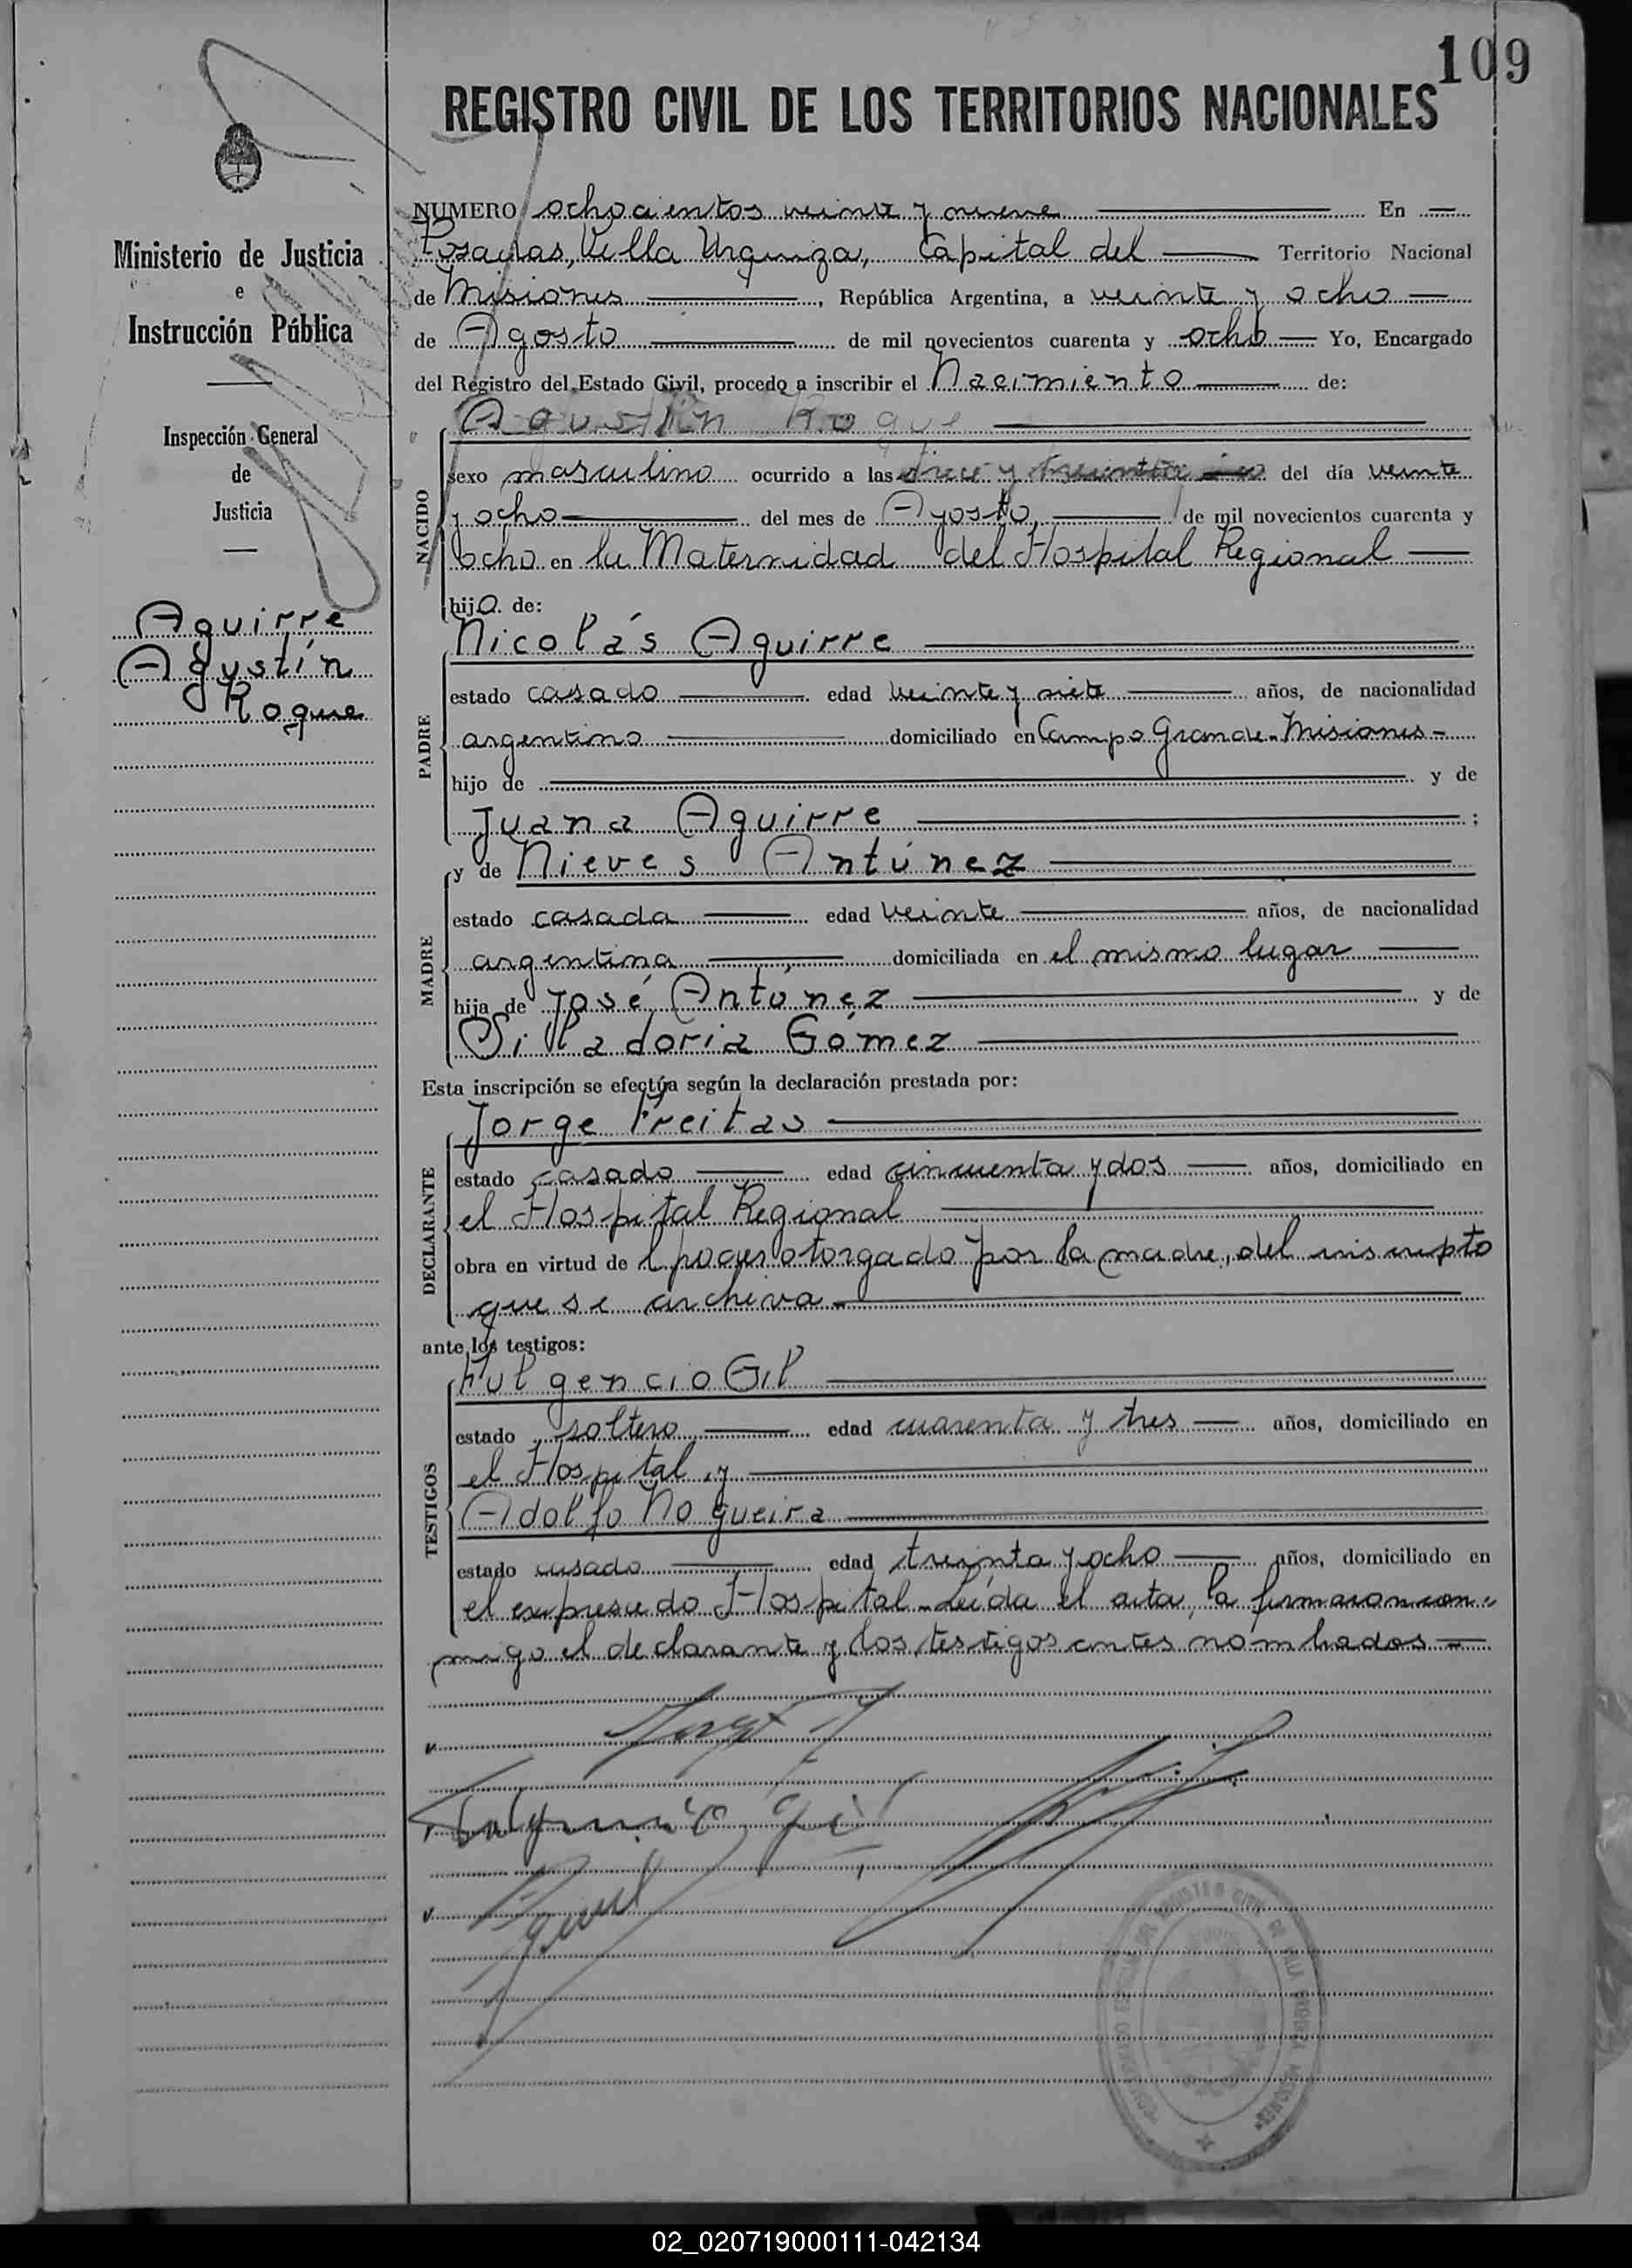 109
REGISTRO CIVIL DE LOS TERRITORIOS NACIONALES
Ministerio de Justicia
e
Instrucción Pública
Inspección General
de
Justicia
Aguirre
Agustín
Roque
NUMERO ochocientos veinte y nueve En
Posadas, Villa Urquiza, Capital del Territorio Nacional
de Misiones, República Argentina, a veinte y ocho
de Agosto de mil novecientos cuarenta y ocho Yo, Encargado
del Registro del Estado Civil, procedo a inscribir el Nacimiento de:
Agustín Roque
NACIDO
sexo masculino ocurrido a las y treinta del día veinte
y ocho del mes de Agosto, de mil novecientos cuarenta y
ocho en la Maternidad del Hospital Regional
hijo de:
PADRE
Nicolás Aguirre
estado casado edad veinte y siete años, de nacionalidad
argentino domiciliado en Campo Grande - Misiones -
hijo de y de
Juana Aguirre ;
MADRE
y de Nieves Antúnez
estado casada edad veinte años, de nacionalidad
argentina domiciliada en el mismo lugar
hija de José Antúnez y de
Silladoria Gómez
Esta inscripción se efectúa según la declaración prestada por:
DECLARANTE
Jorge Freitas
estado casado edad cincuenta y dos años, domiciliado en
el Hospital Regional
obra en virtud del poder otorgado por la madre, del inscripto
que se archiva -
ante los testigos:
TESTIGOS
Fulgencio Gil
estado soltero edad cuarenta y tres años, domiciliado en
el Hospital, y
Adolfo Nogueira
estado casado edad treinta y ocho años, domiciliado en
el expresado Hospital - Leída el acta, la firmaron con-
migo el declarante y los testigos antes nombrados -
Fulgencio Gil
02_020719000111-042134